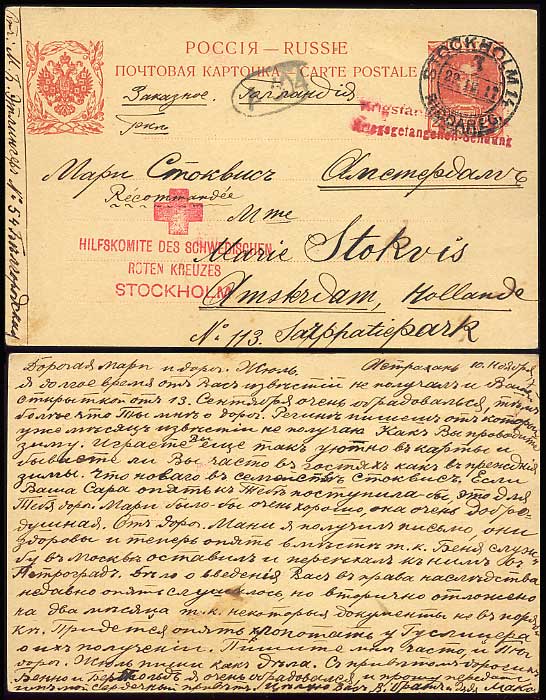 РОССІЯ — RUSSIE
ПОЧТОВАЯ КАРТОЧКА — CARTE POSTALE
STOCKHOLM 14
Заказное. Голландія
Kriegsgefangenen-Sendung
Мари Стоквисъ Амстердамъ
Récommandée
Mme
HILFSKOMITE DES SCHWEDISCHEN
Marie Stokvis
ROTEN KREUZES
STOCKHOLM
Amsterdam, Hollande
№ 113. Sarphatiepark
Дорогая Мари и дорог. Жюль. Астрахань 10. Ноября
Я долгое время отъ Васъ извѣстій не получалъ и Вашей
открыткой отъ 13. Сентября очень обрадовался, тѣмъ
болѣе что Ты мнѣ о дорог. Регинѣ пишешь отъ которой
уже мѣсяцъ извѣстій не получаю. Какъ Вы проводите
зиму. Играете Вы еще такъ уютно въ карты и
бываете ли Вы часто въ гостяхъ какъ въ прежнія
зимы. Что новаго въ семействѣ Стоквисъ. Если
Ваша Сара опять къ Тебѣ поступила бы, это для
Тебя дорог. Мари было-бы очень хорошо, она очень добро-
душная. Отъ дорог. Мани я получилъ письмо, они
здоровы и теперь опять вмѣстѣ т. к. Беня служ-
бу въ Москвѣ оставилъ и переѣхалъ къ нимъ въ
Петроградъ. Дѣло о введеніи Васъ въ права наслѣдства
недавно опять слушалось, но вторично отложено
на два мѣсяца т. к. некоторыя документы не въ поряд-
кѣ. Придется опять хлопотать у
о ихъ полученіи. Пишите мнѣ часто, и Ты
дорог. Жюль пиши какъ дѣла. Съ привѣтомъ дорогихъ
Бенно и Бертольдъ я очень обрадовался и прошу передать
имъ мой сердечный Цѣлую Васъ